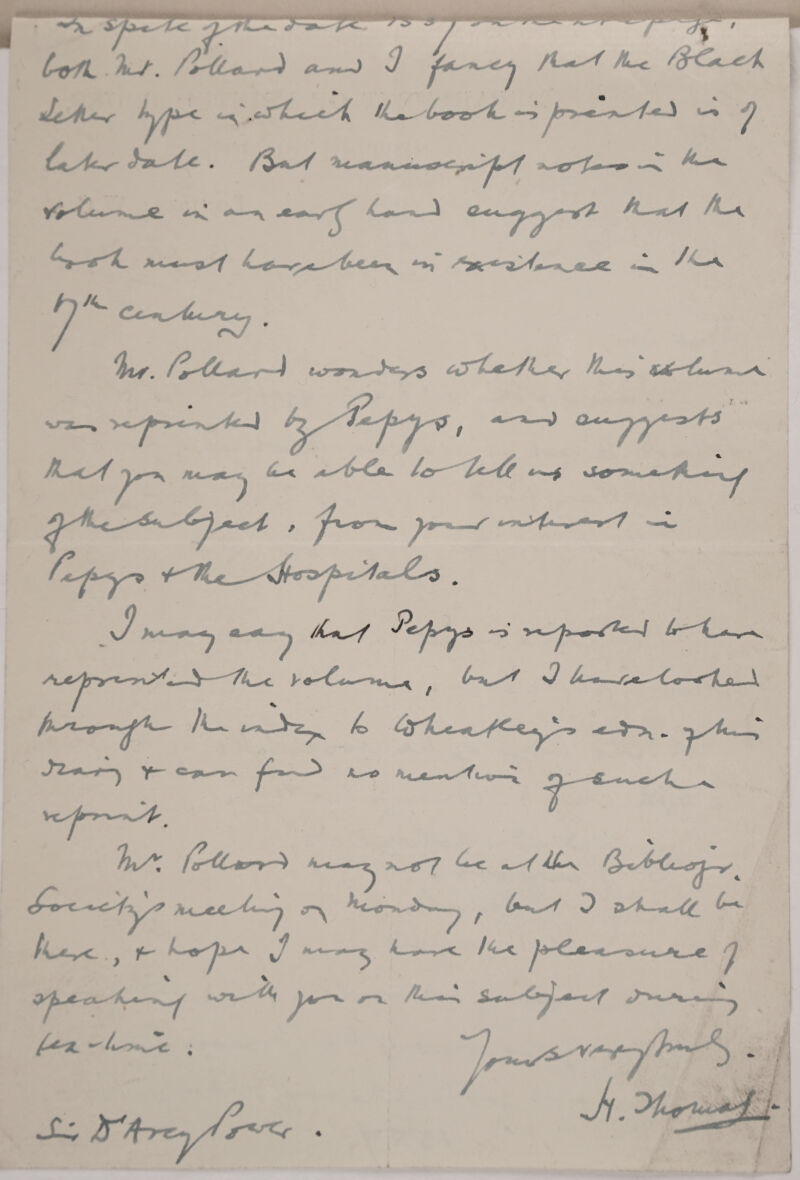 In spite of the date 1557 on the titlepage,
both Mr. Pollard and I fancy that the Black
Letter type in which the book is printed is of
later date. But manuscript notes in the
volume in an early hand suggest that the
book must have been in existence in the
17th century.
Mr. Pollard wonders whether this volume
was reprinted by Pepys, and suggests
that you may be able to tell us something
of the subject, from your interest in
Pepys & the Hospitals.
I may say that Pepys is reported to have
reprinted the volume, but I have looked
through the index to Wheatley's edn. of his
diary & can find no mention of such a
reprint.
Mr. Pollard may not be at the Bibliogr.
Society's meeting on Monday, but I shall be
there, & hope I may have the pleasure of
speaking with you on this subject during
tea-time.
Yours very truly.
H. Thomas.
Sir D'Arcy Power.